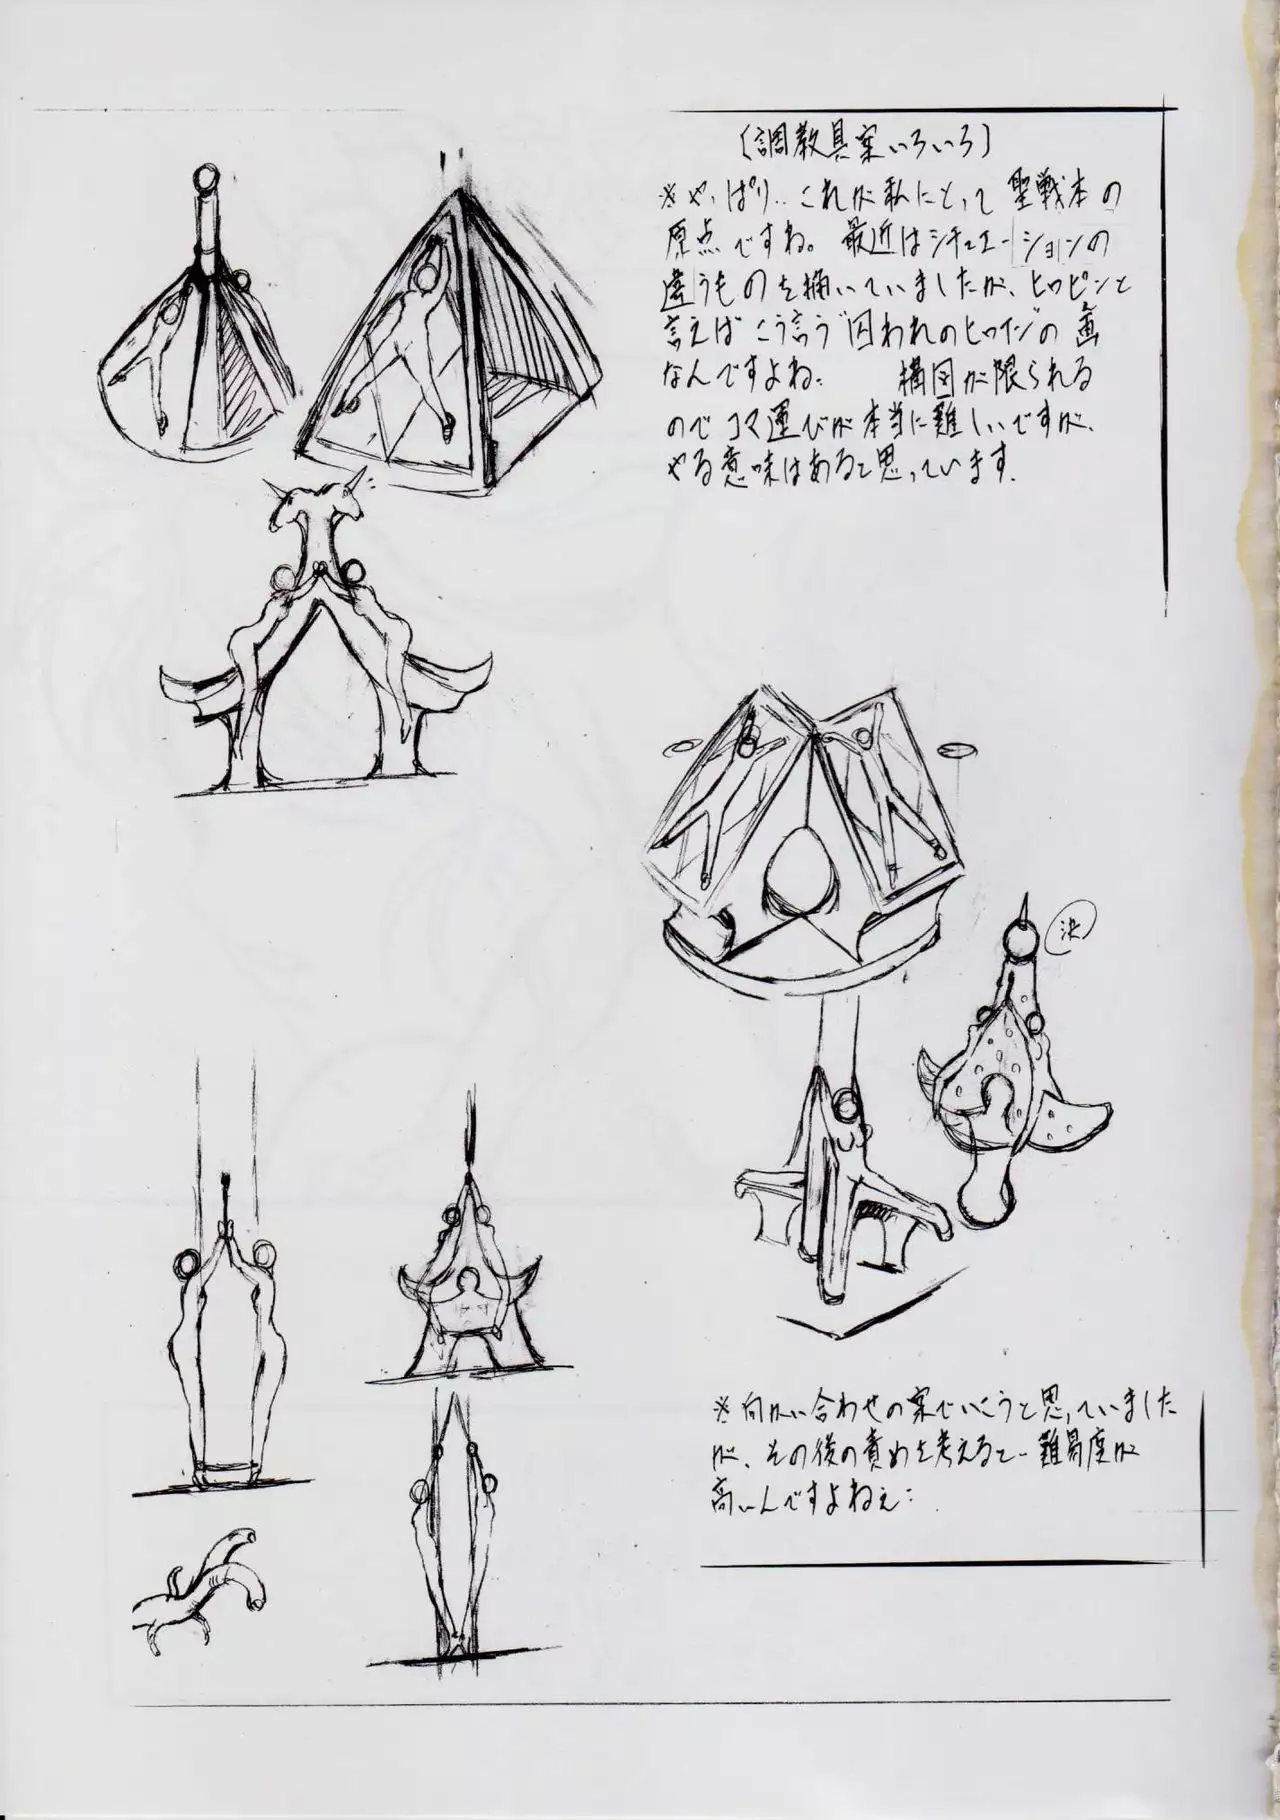 〔調教具案いろいろ〕
※やっぱり‥これが私にとって聖戦本の
原点ですね。最近はシチュエーションの
違うものを描いていましたが、ヒロピンと
言えばこう言う“囚われのヒロイン”の画
なんですよね: 構図が限られる
のでコマ運びが本当に難しいですが、
やる意味はあると思っています.
決
※向かい合わせの案でいこうと思っていました
が、その後の責めを考えると‥難易度が
高いんですよねぇ: